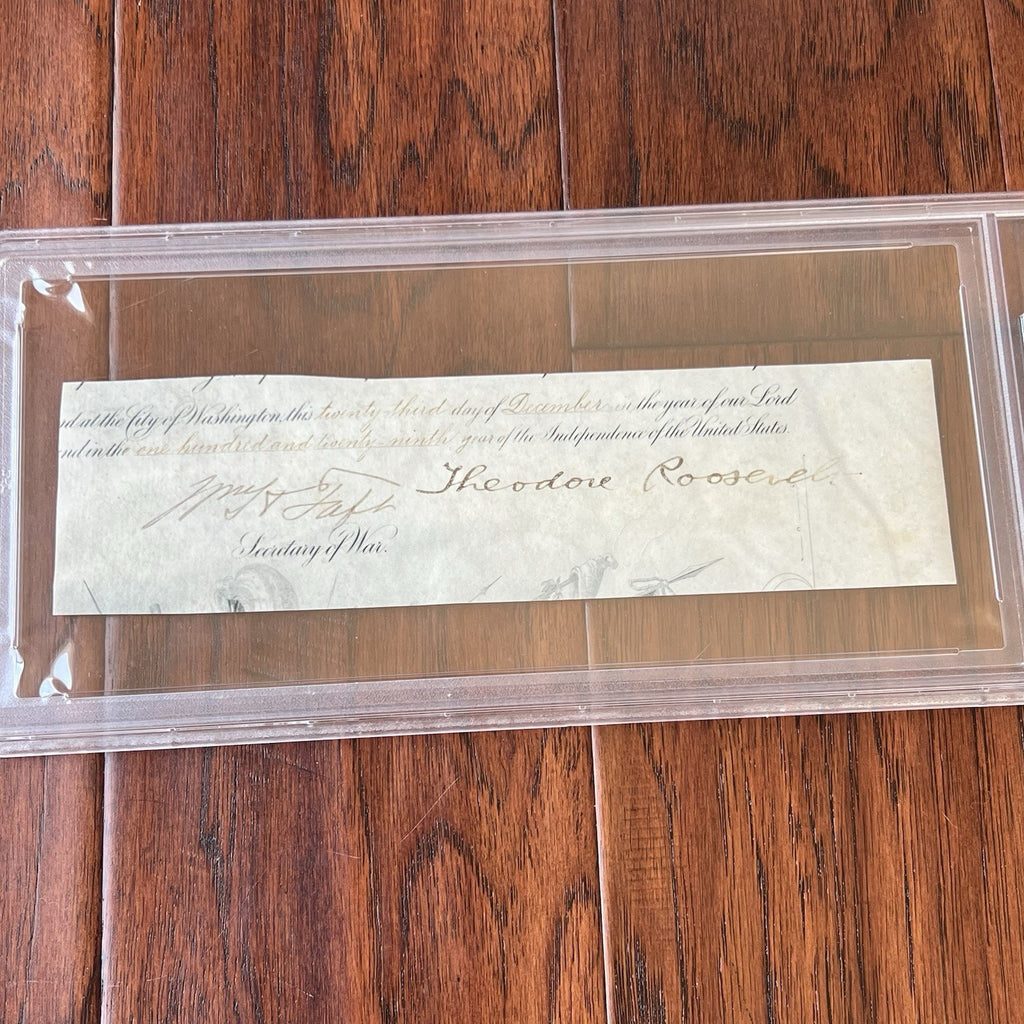 nd at the City of Washington, this twenty-third day of December in the year of our Lord
nd in the one hundred and twenty-ninth year of the Independence of the United States.
Wm H Taft Theodore Roosevelt
Secretary of War.